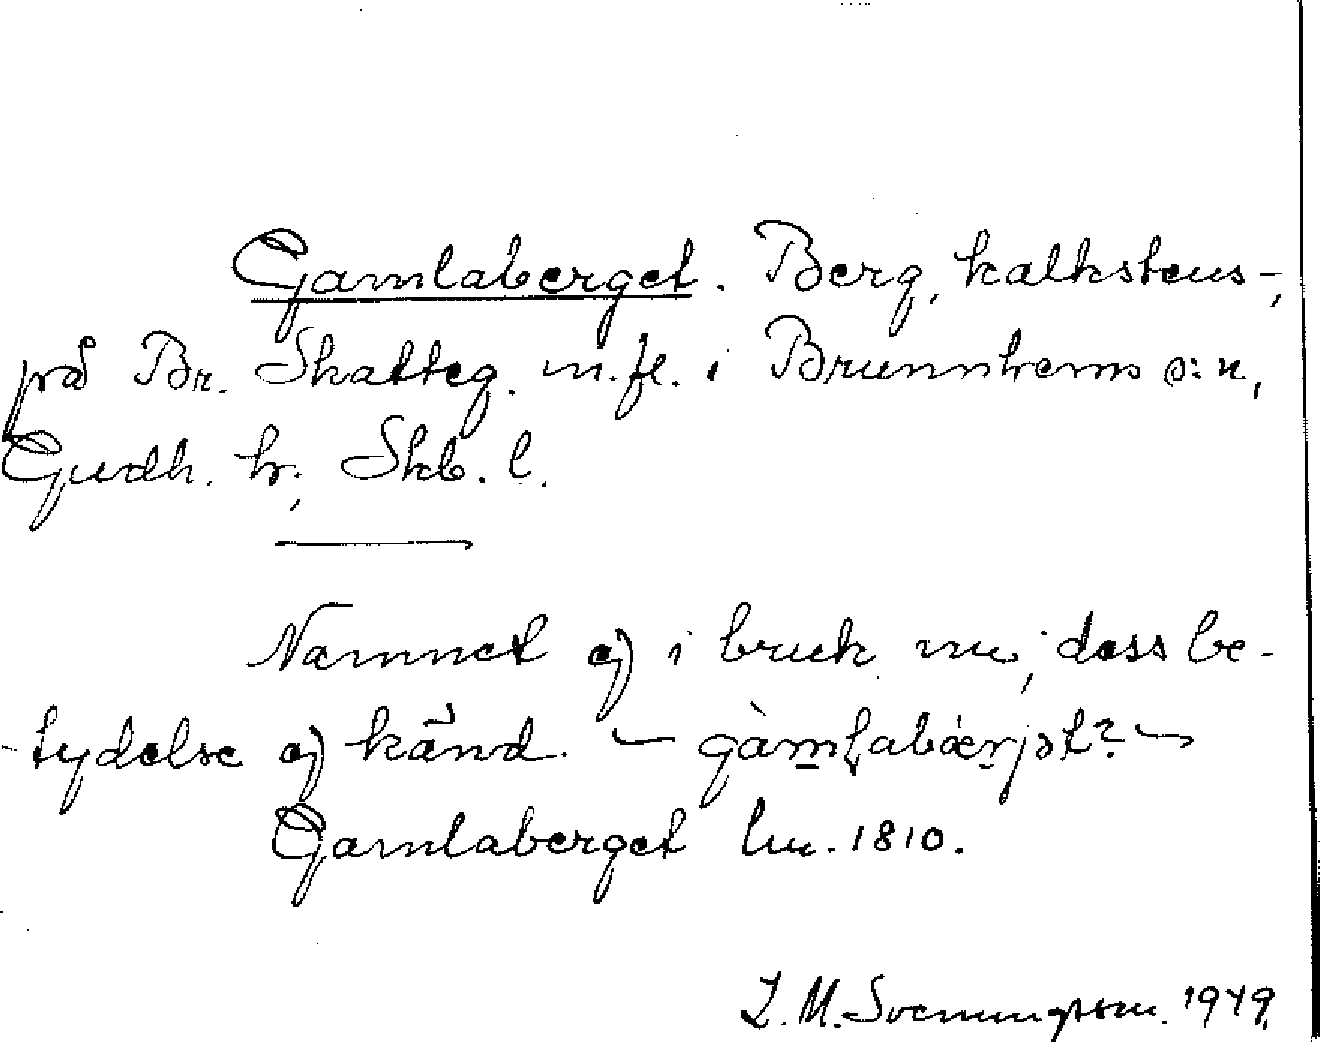 Gamlaberget. Berg, kalkstens-,
på Br. Skatteg. m.fl. i Brunnhems s:n,
Gudh. h., Skb. l.
Namnet ej i bruk nu; dess be-
tydelse ej känd. — gàmlabärjət? —
Gamlaberget lm. 1810.
L. M. Svenungsson. 1949.